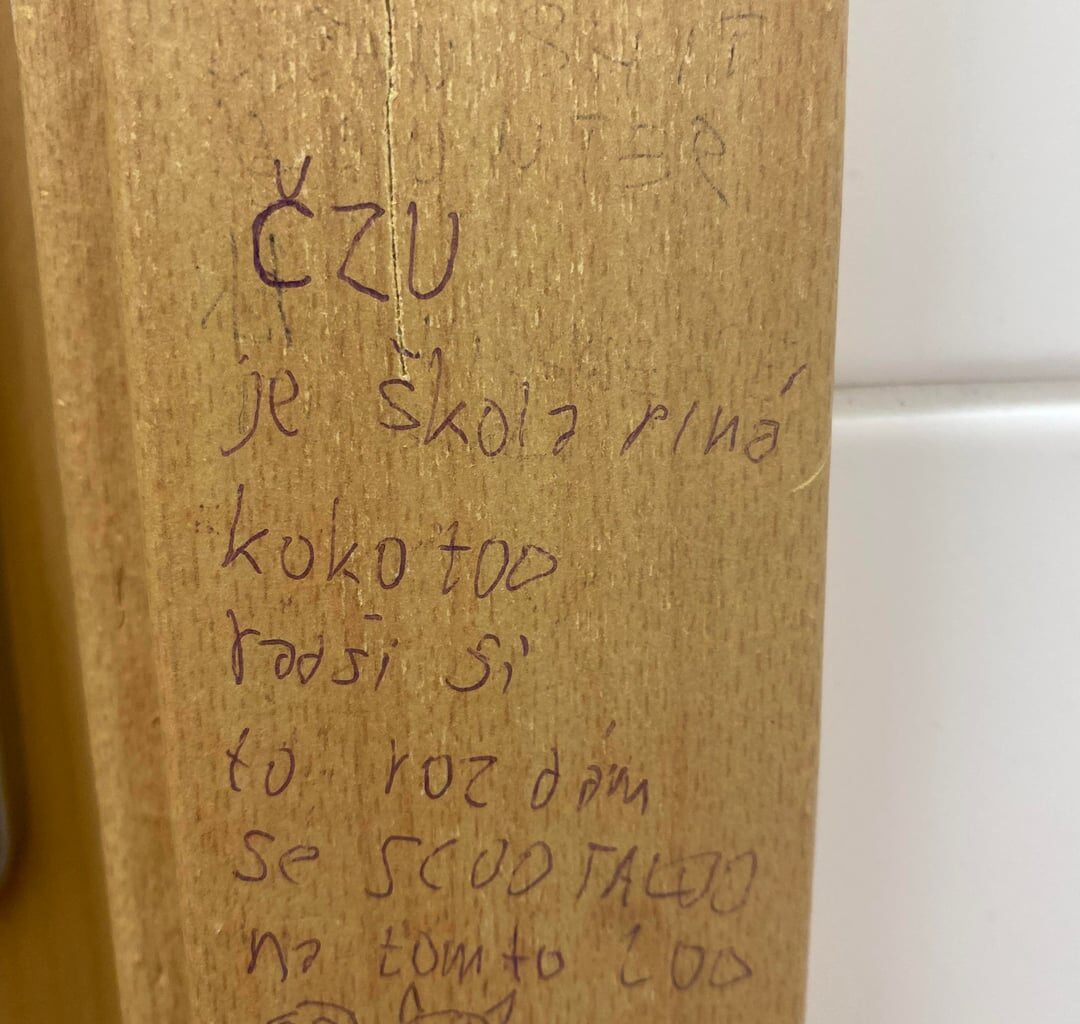 ČZU
je škola plná
kokotoo
radši si
to rozdám
se SCOOTALOO
na tomto LOO